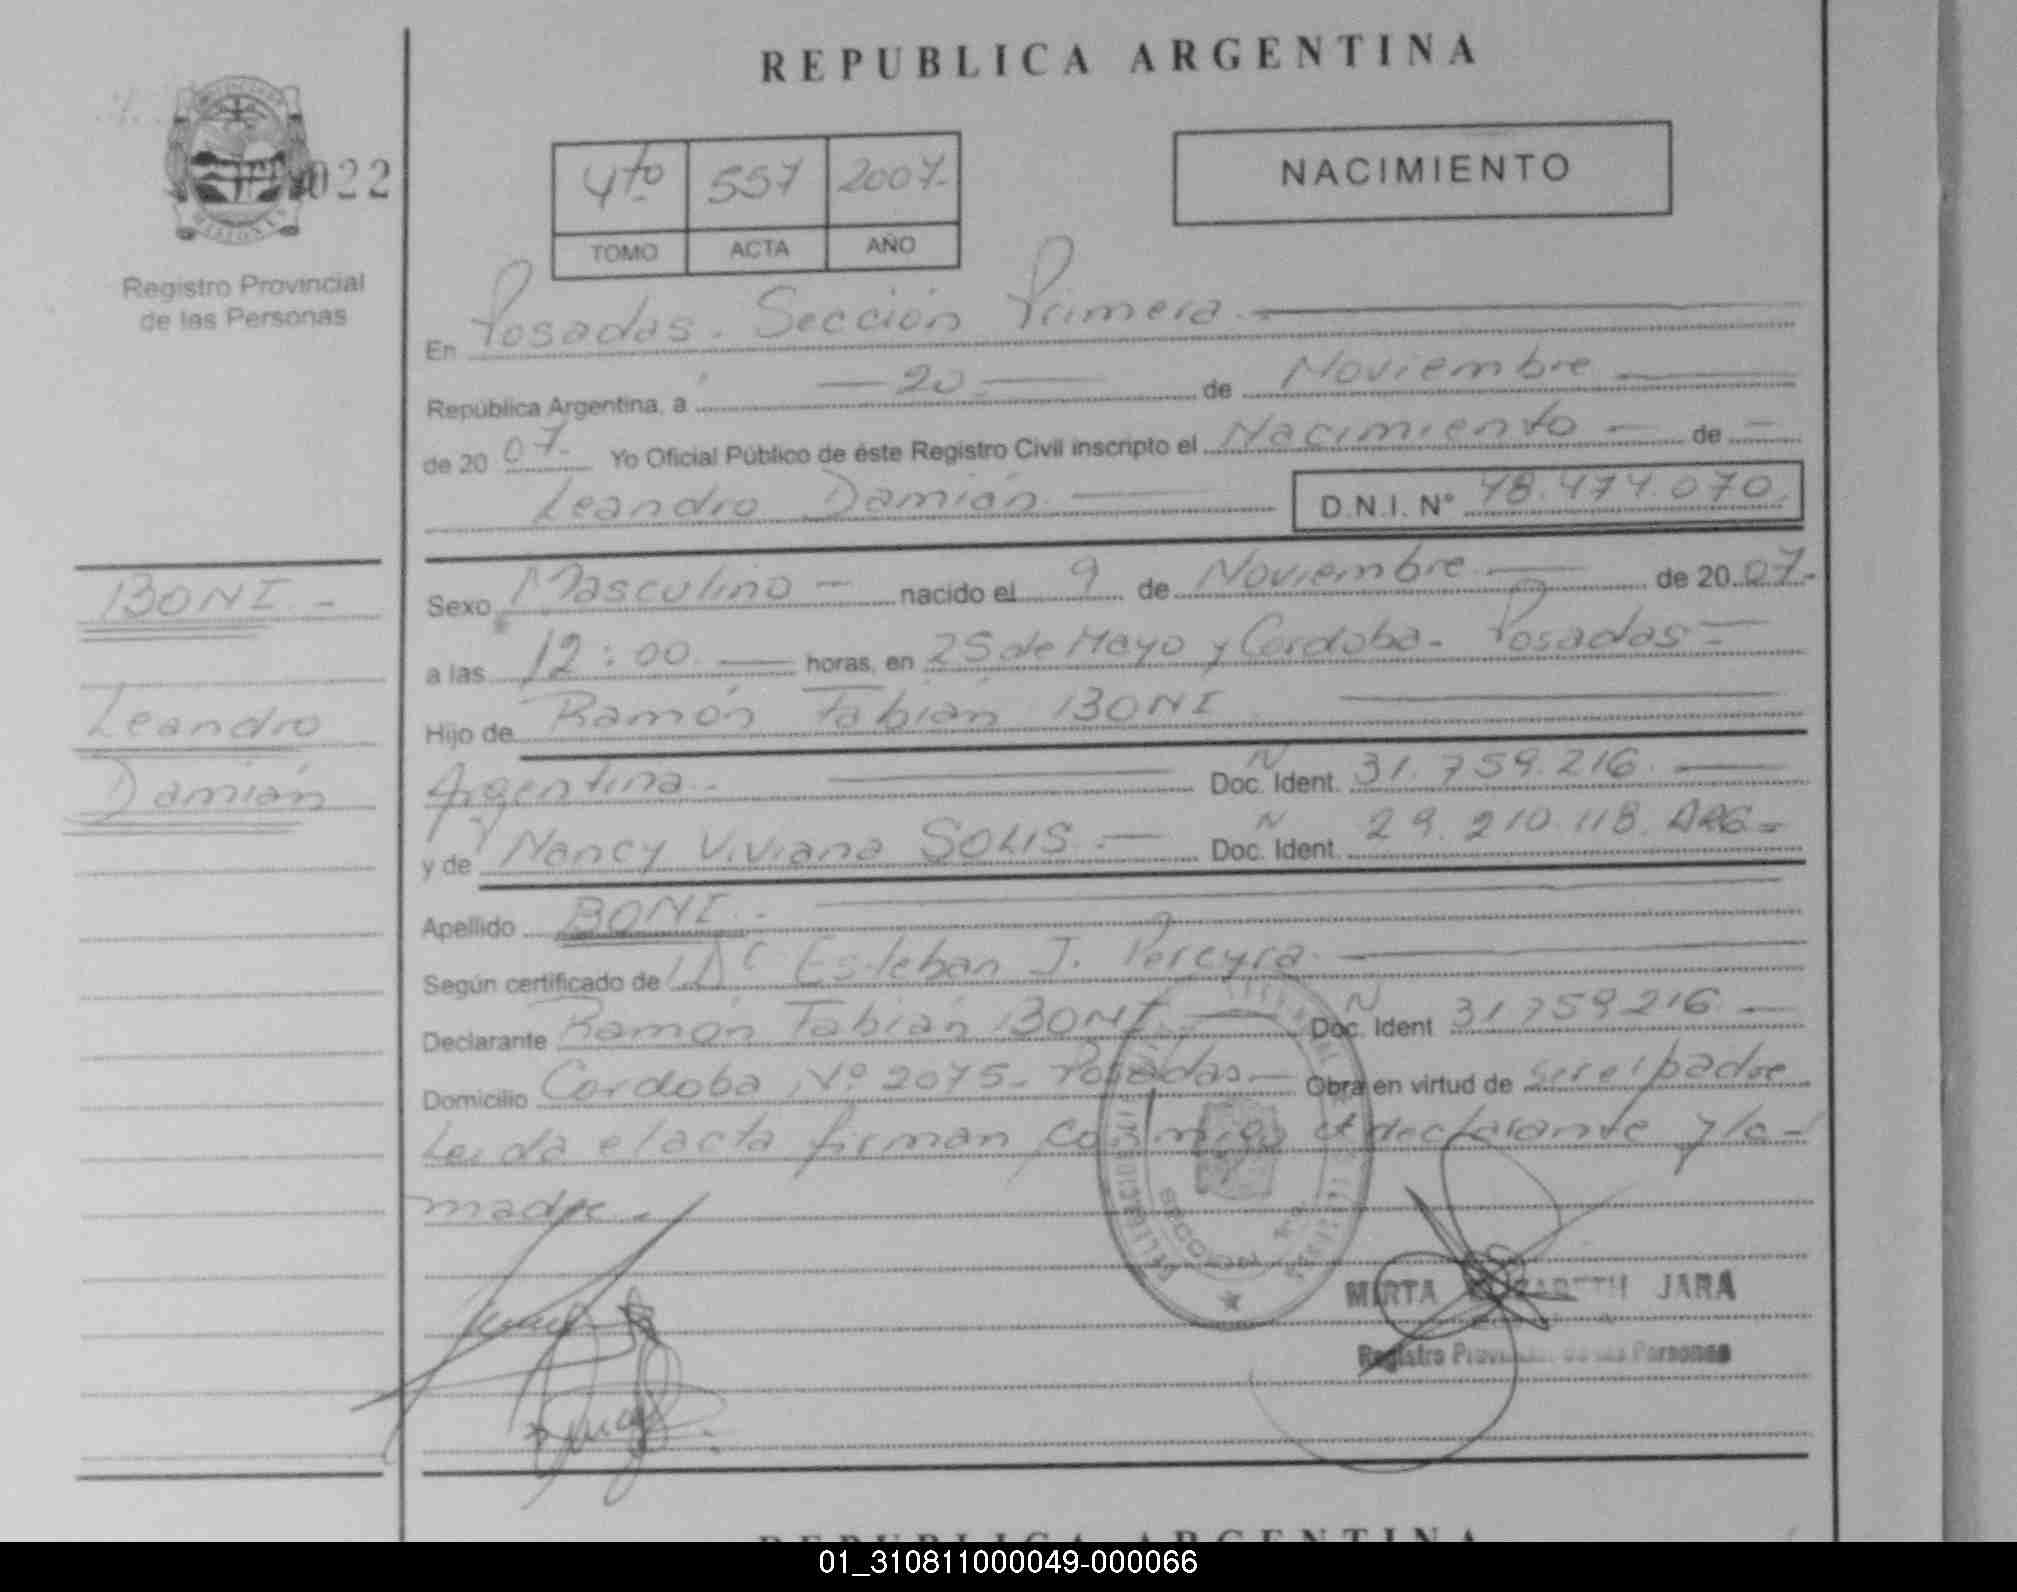 REPUBLICA ARGENTINA
022
Registro Provincial
de las Personas
4to 557 2007.-
TOMO ACTA AÑO
NACIMIENTO
En Posadas. Sección Primera.
República Argentina, a 20 de Noviembre
de 2007.- Yo Oficial Público de éste Registro Civil inscripto el Nacimiento - de -
Leandro Damián D.N.I. N° 48.474.070.
BONI.-
Leandro
Damián
Sexo Masculino - nacido el 9 de Noviembre de 2007.-
a las 12:00 horas, en 25 de Mayo y Cordoba - Posadas -
Hijo de Ramón Fabián BONI
Argentina.- Doc. Ident. N 31.759.216.
y de Nancy Viviana SOLIS.- Doc. Ident. N 29.210.118. ARG-
Apellido BONI.-
Según certificado de Esteban J. Pereyra.
Declarante Ramón Fabián BONI Doc. Ident N 31759216.-
Domicilio Cordoba N° 2075. Posadas - Obra en virtud de ser el padre
Leida el acta firman conmigo el declarante y la -
madre.-
SECCION 1ra
MIRTA ELIZABETH JARA
Registro Provincial de las Personas
REPUBLICA ARGENTINA
01_310811000049-000066